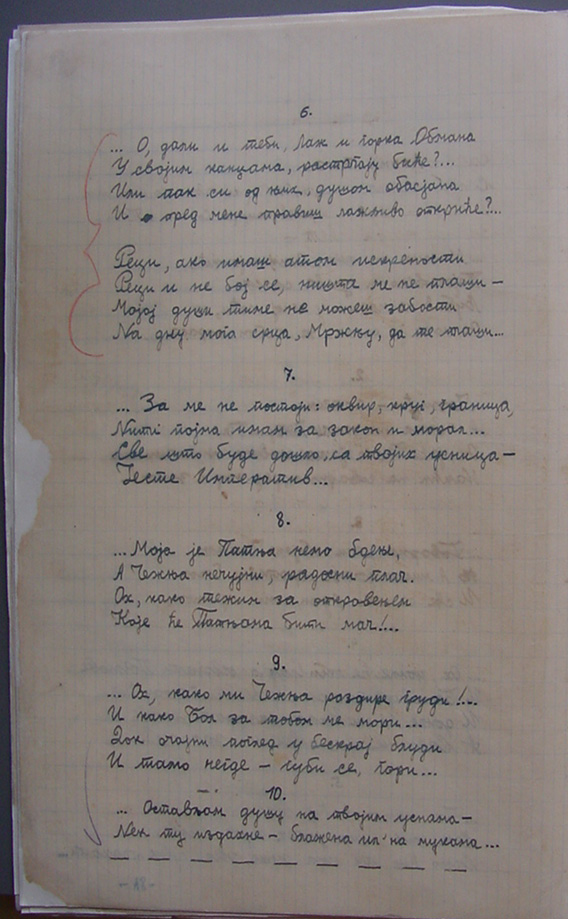 6.
... О, дали и теби, Лаж и горка Обмана
У својим канџама, растрґају биће?...
Или пак си од њих, душом обасјана
И пред мене правиш лажљиво откриће?...
Реци, ако имаш атом искрености
Реци и не бој се, ништа ме не плаши —
Мојој души тиме не можеш забости
На дну мога срца, Мржњу, да те плаши...
7.
... За ме не постоји: оквир, круг, граница,
Нити појма имам за закон и морал...
Све што буде дошло, са твојих усница —
Јесте Императив...
8.
...Моја је Патња немо бдење,
А Чежња нечујни, радосни плач.
Ох, како тежим за откровењем
Које ће Патњама бити мач!...
9.
... Ох, како ми Чежња раздире груди!...
И како Бол за тобом ме мори...
Док очајни поглед у бескрај блуди
И тамо негде — губи се, гори...
10.
... Остављам душу на твојим уснама —
Нек ту издахне — блажена ил' на мукама...